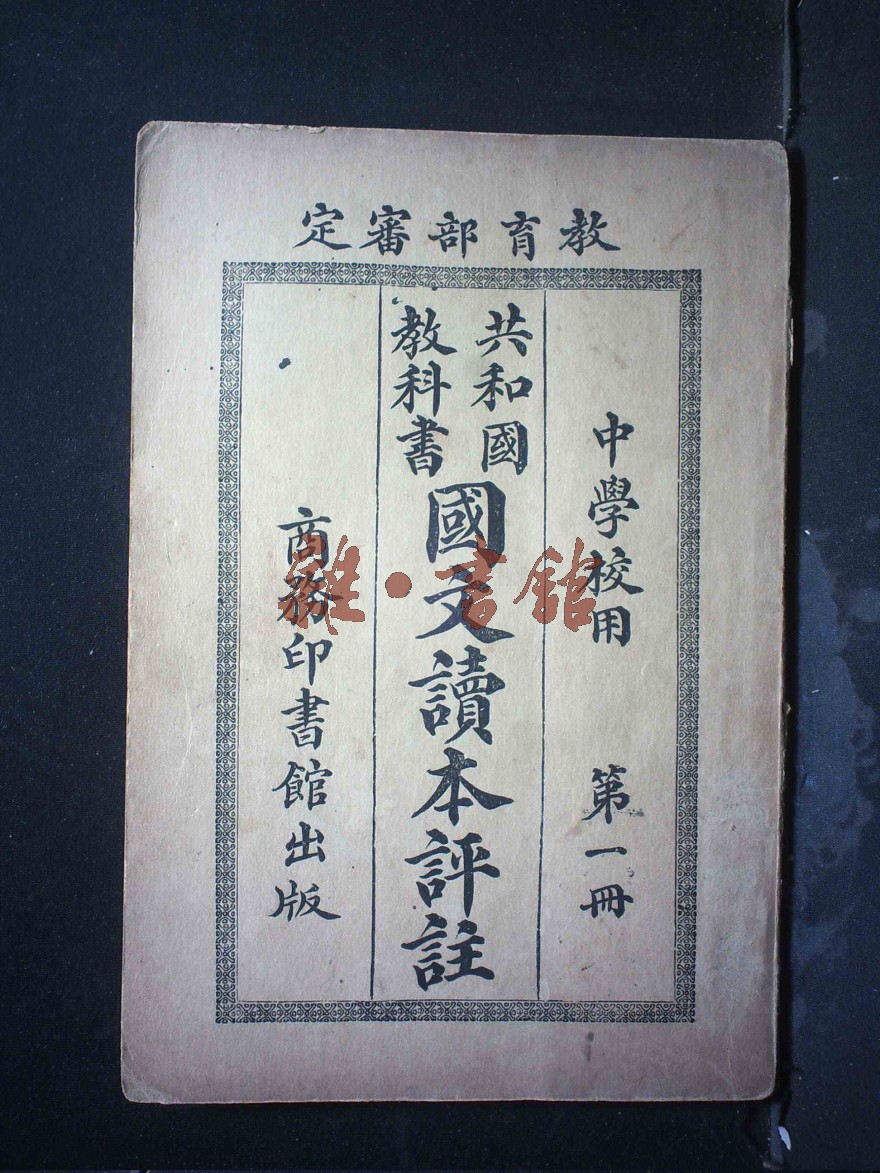 教育部審定
中學校用 第一冊
共和國
教科書
國文讀本評註
商務印書館出版
雜·書館